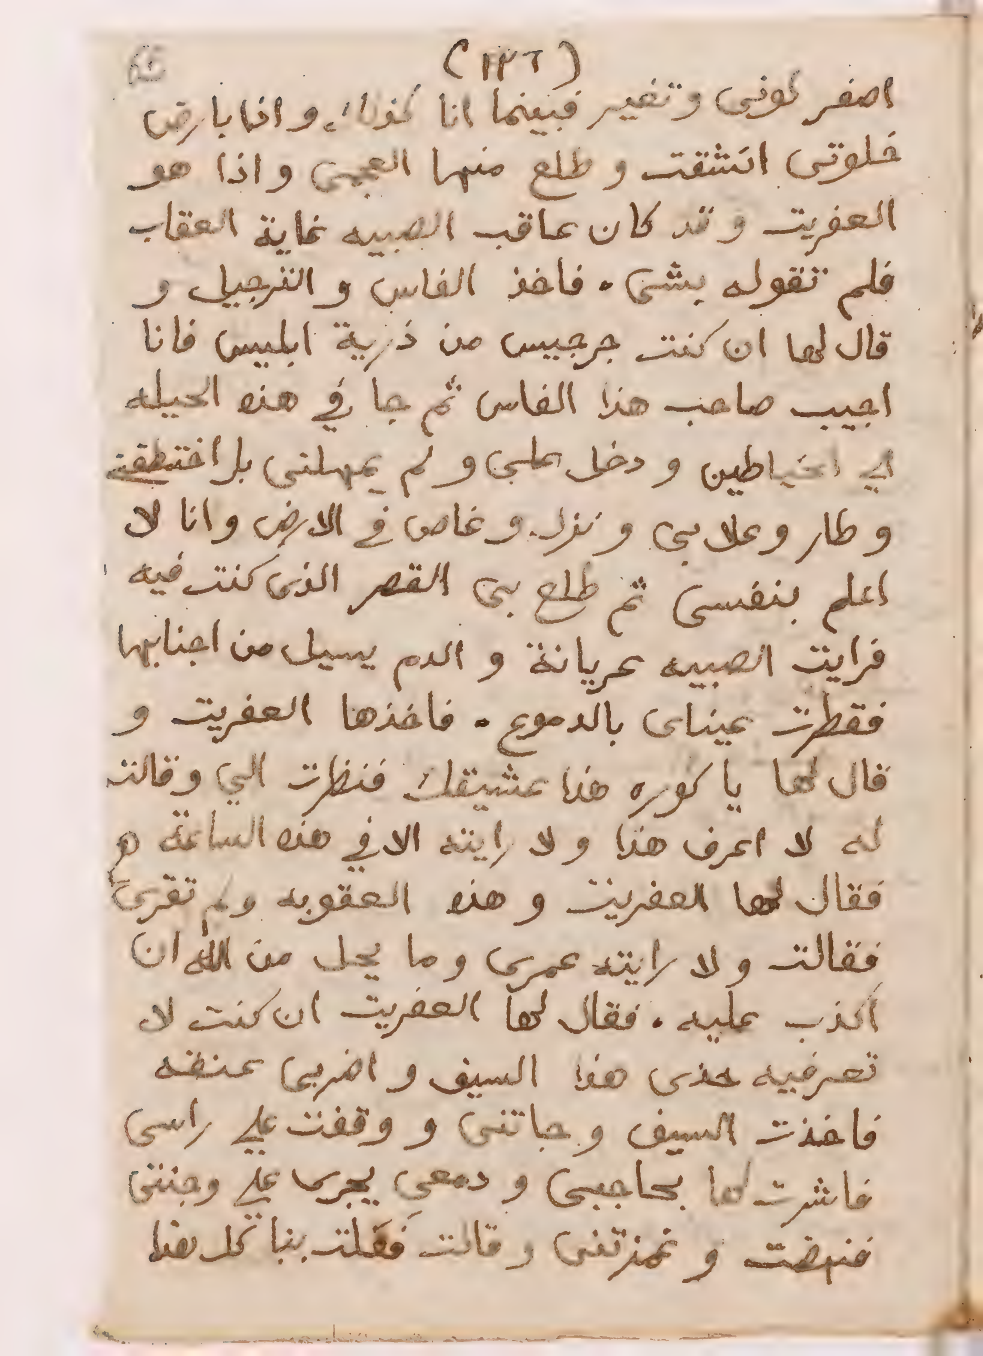 (١٣٦)
اصفر لونى وتغير فبينما انا كذلك واذا بارض
خلوتى انشقت و طلع منها العجمى واذا هو
العفريت و قد كان عاقب الصبيه غاية العقاب
فلم تقوله بشى . فاخذ الفاس و الترجيل و
قال لها ان كنت جرجيس من ذرية ابليس فانا
اجيب صاحب هذا الفاس ثم جا في هذه الحيله
الي الخياطين و دخل على و لم يمهلنى بل اختطفنى
و طار وعلا بى و نزل وغاص في الارض وانا لا
اعلم بنفسى ثم طلع بى القصر الذى كنت فيه
فرايت الصبيه عريانة و الدم يسيل من اجنابها
فقطرت عيناى بالدموع . فاخذها العفريت و
قال لها يا كوره هذا عشيقك فنظرت الي وقالت
له لا اعرف هذا و لا رايته الا في هذه الساعة
فقال لها العفريت و هذه العقوبه ولم تقرى
فقالت و لا رايته عمرى وما يحل من الله ان
اكذب عليه . فقال لها العفريت ان كنت لا
تعرفيه خذى هذا السيف و اضربى عنقه
فاخذت السيف و جاتنى و وقفت علي راسى
فاشرت لها بحاجبى و دمعي يجرى علي وجنتى
فنهضت و غمزتنى و قالت فعلت بنا كل هذا